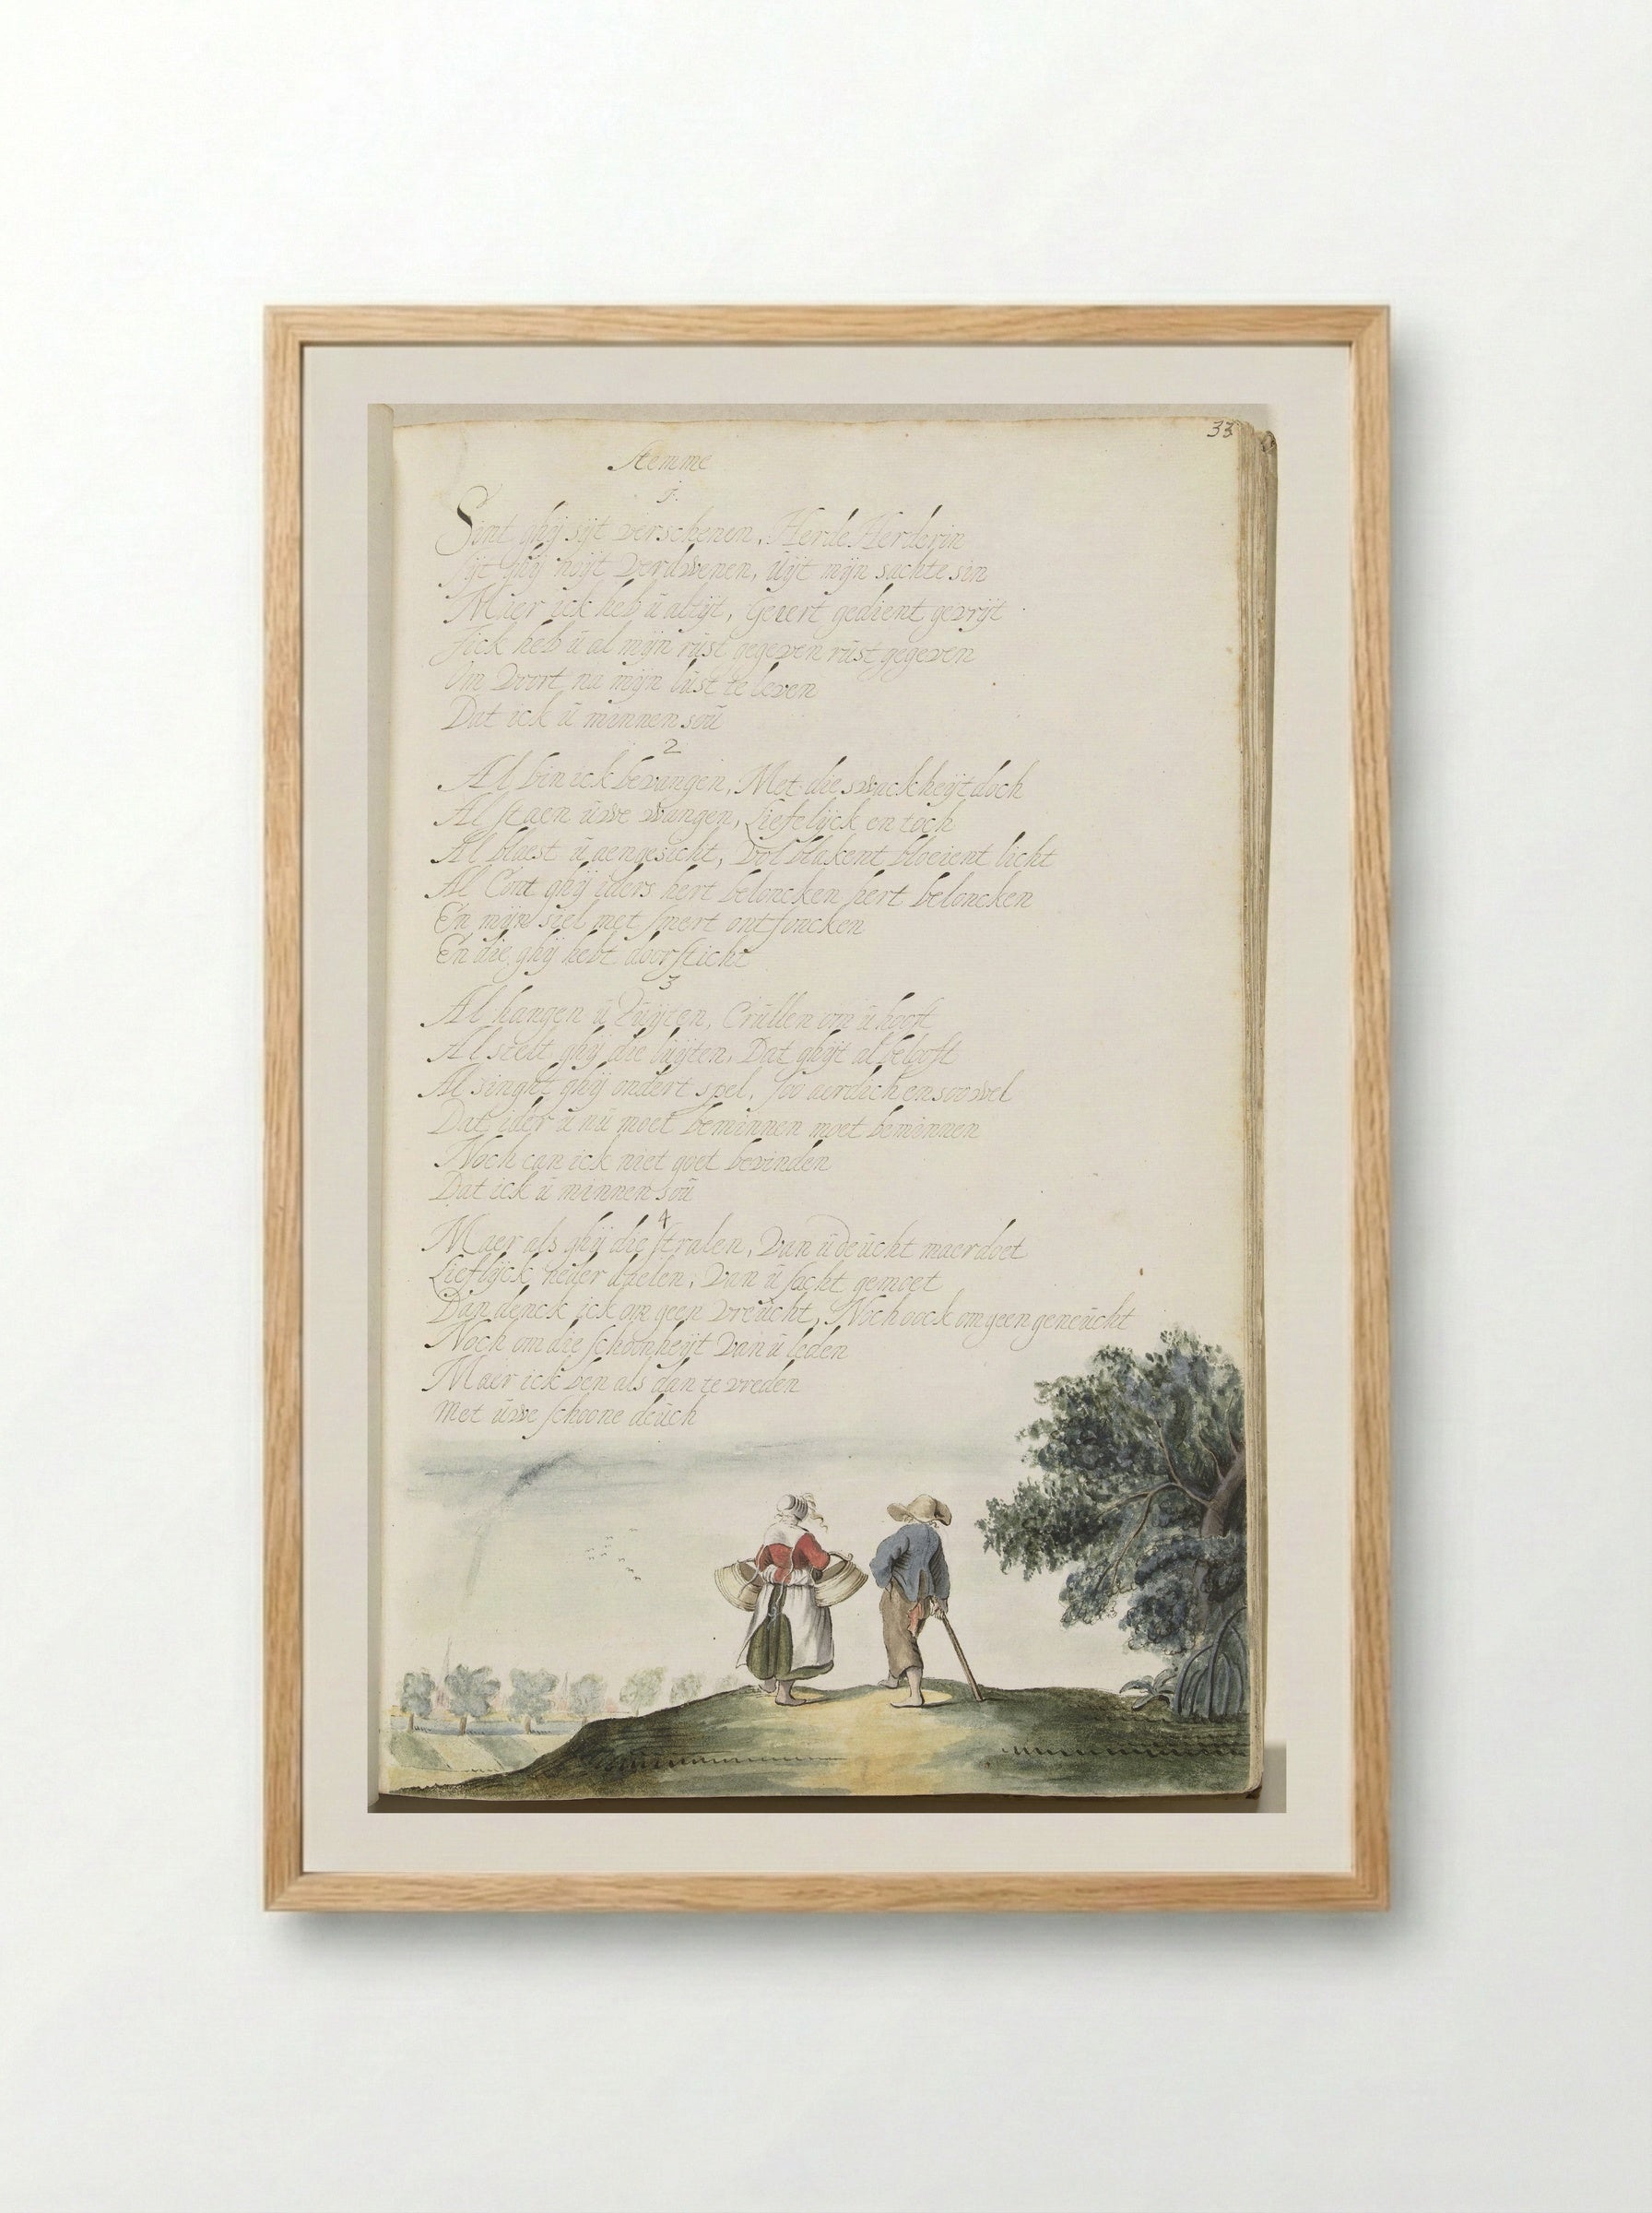 33
Stemme
1.
Sint ghij sijt verschenen, Herde Herderin
sijt ghij noijt verdwenen, uijt mijn sachte sin
Maer ick heb ü altijt, Geeert gedient gevrijt
Jick heb ü al mijn rüst gegeven rüst gegeven
Om voort na mijn lüst te leven
Dat ick ü minnen soü
2
Al bin ick bevangen, Met die swackheijt doch
Al staen üwe wangen, Liefelijck en toch
Al blaest ü aengesicht, vol blakent bloeient licht
Al Cont ghij iders hert beloncken hert beloncken
En mijn siel met smert ontfoncken
En die ghij hebt doorsticht
3
Al hangen ü Tuijten, Crüllen om ü hooft
Al stelt ghij die luijten, Dat ghijt al belooft
Al singht ghij ondert spel, soo aerdich en soo wel
Dat ider ü nü moet beminnen moet beminnen
Noch can ick niet goet bevinden
Dat ick ü minnen soü
4
Maer als ghij die stralen, van ü deücht maer doet
Lieflijck neder daelen, van ü sacht gemoet
Dan denck ick om geen vreücht, Noch oock om geen geneücht
Noch om die schoonheijt van ü leden
Maer ick ben als dan te vreden
Met üwe schoone deüch